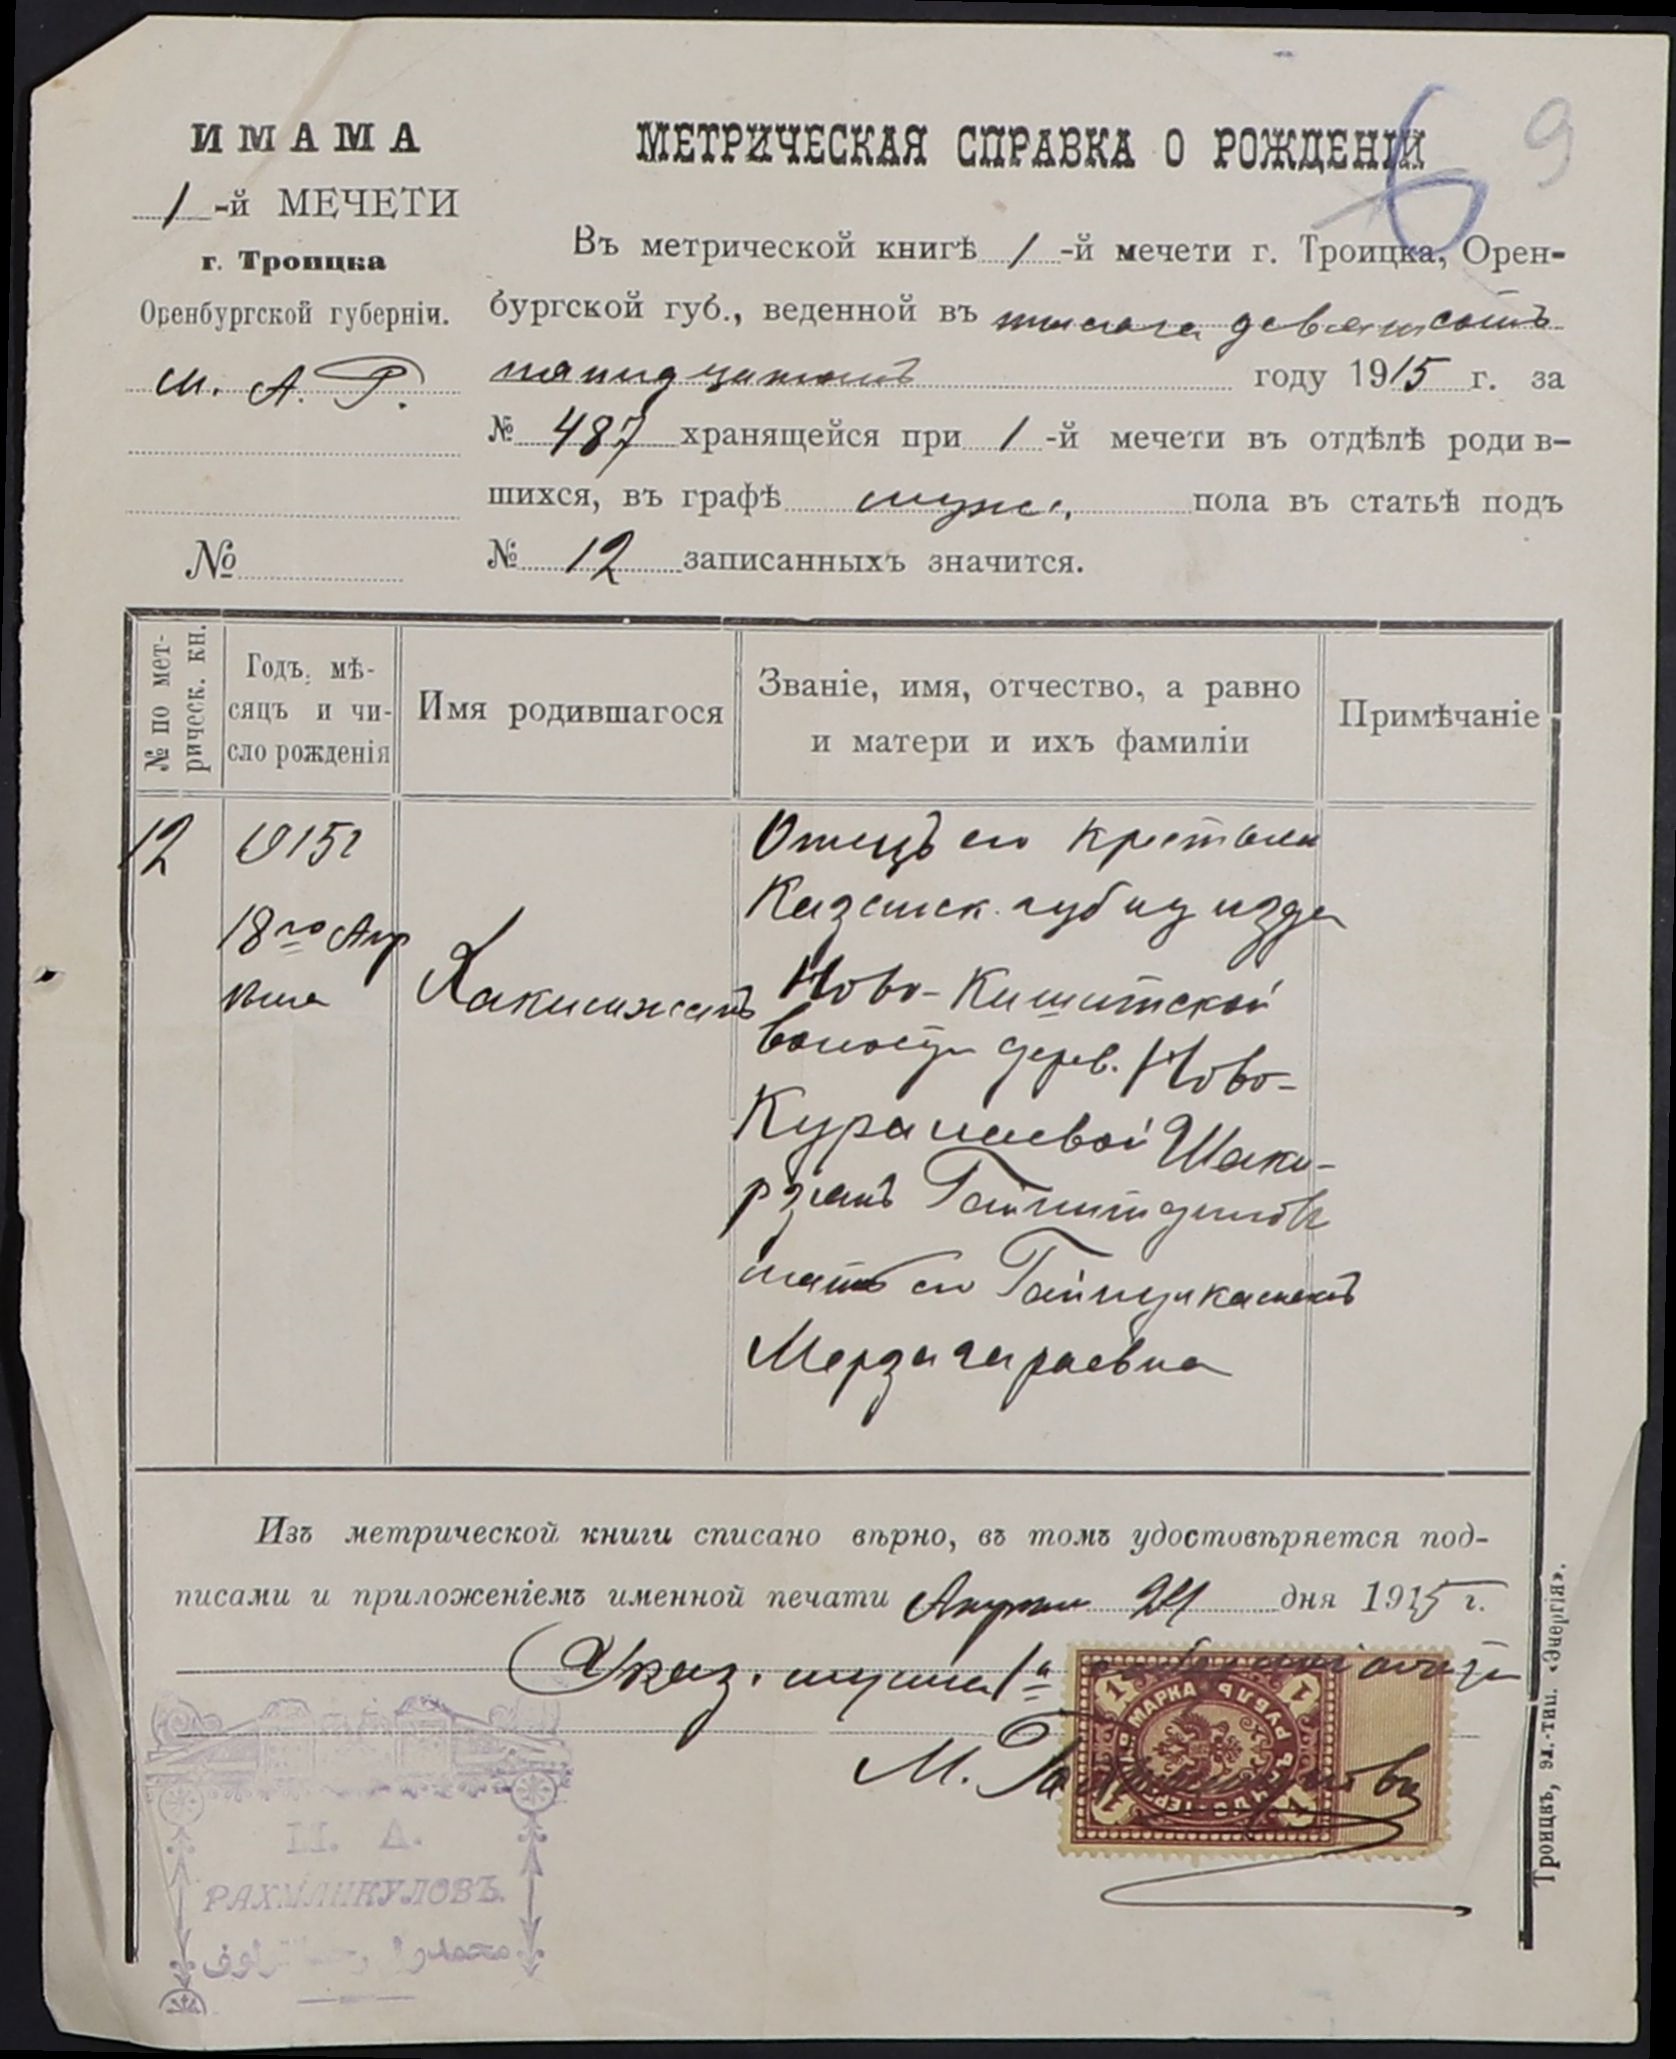 ИМАМА
1-й МЕЧЕТИ
г. Троицка
Оренбургской губерніи.
М. А. Р.
№
МЕТРИЧЕСКАЯ СПРАВКА О РОЖДЕНІИ
6 9
Въ метрической книгѣ 1-й мечети г. Троицка, Орен-
бургской губ., веденной въ тысяча девятсотъ
пятнадцатомъ году 1915 г. за
№ 487 хранящейся при 1-й мечети въ отдѣлѣ родив-
шихся, въ графѣ муж. пола въ статьѣ подъ
№ 12 записанныхъ значится.
№ по мет-
рическ. кн.
Годъ, мѣ-
сяцъ и чи-
сло рожденія
Имя родившагося
Званіе, имя, отчество, а равно
и матери и ихъ фамиліи
Примѣчаніе
12
1915г
18го Апр
Хакимжанъ
Отецъ его
Казанск. губ
Ново-Кишитской
волости дерев. Ново-
Шаки-
рзянъ
мать его
Мерзагараевна
Изъ метрической книги списано вѣрно, въ томъ удостовѣряется под-
писами и приложеніемъ именной печати 24 дня 1915 г.
Указ. мулла 1й
М.
МАРКА 1 РУБЛЬ
1 1 1 1
М. А.
РАХМАНКУЛОВЪ.
Троицкъ, эл.-тип. «Энергія».